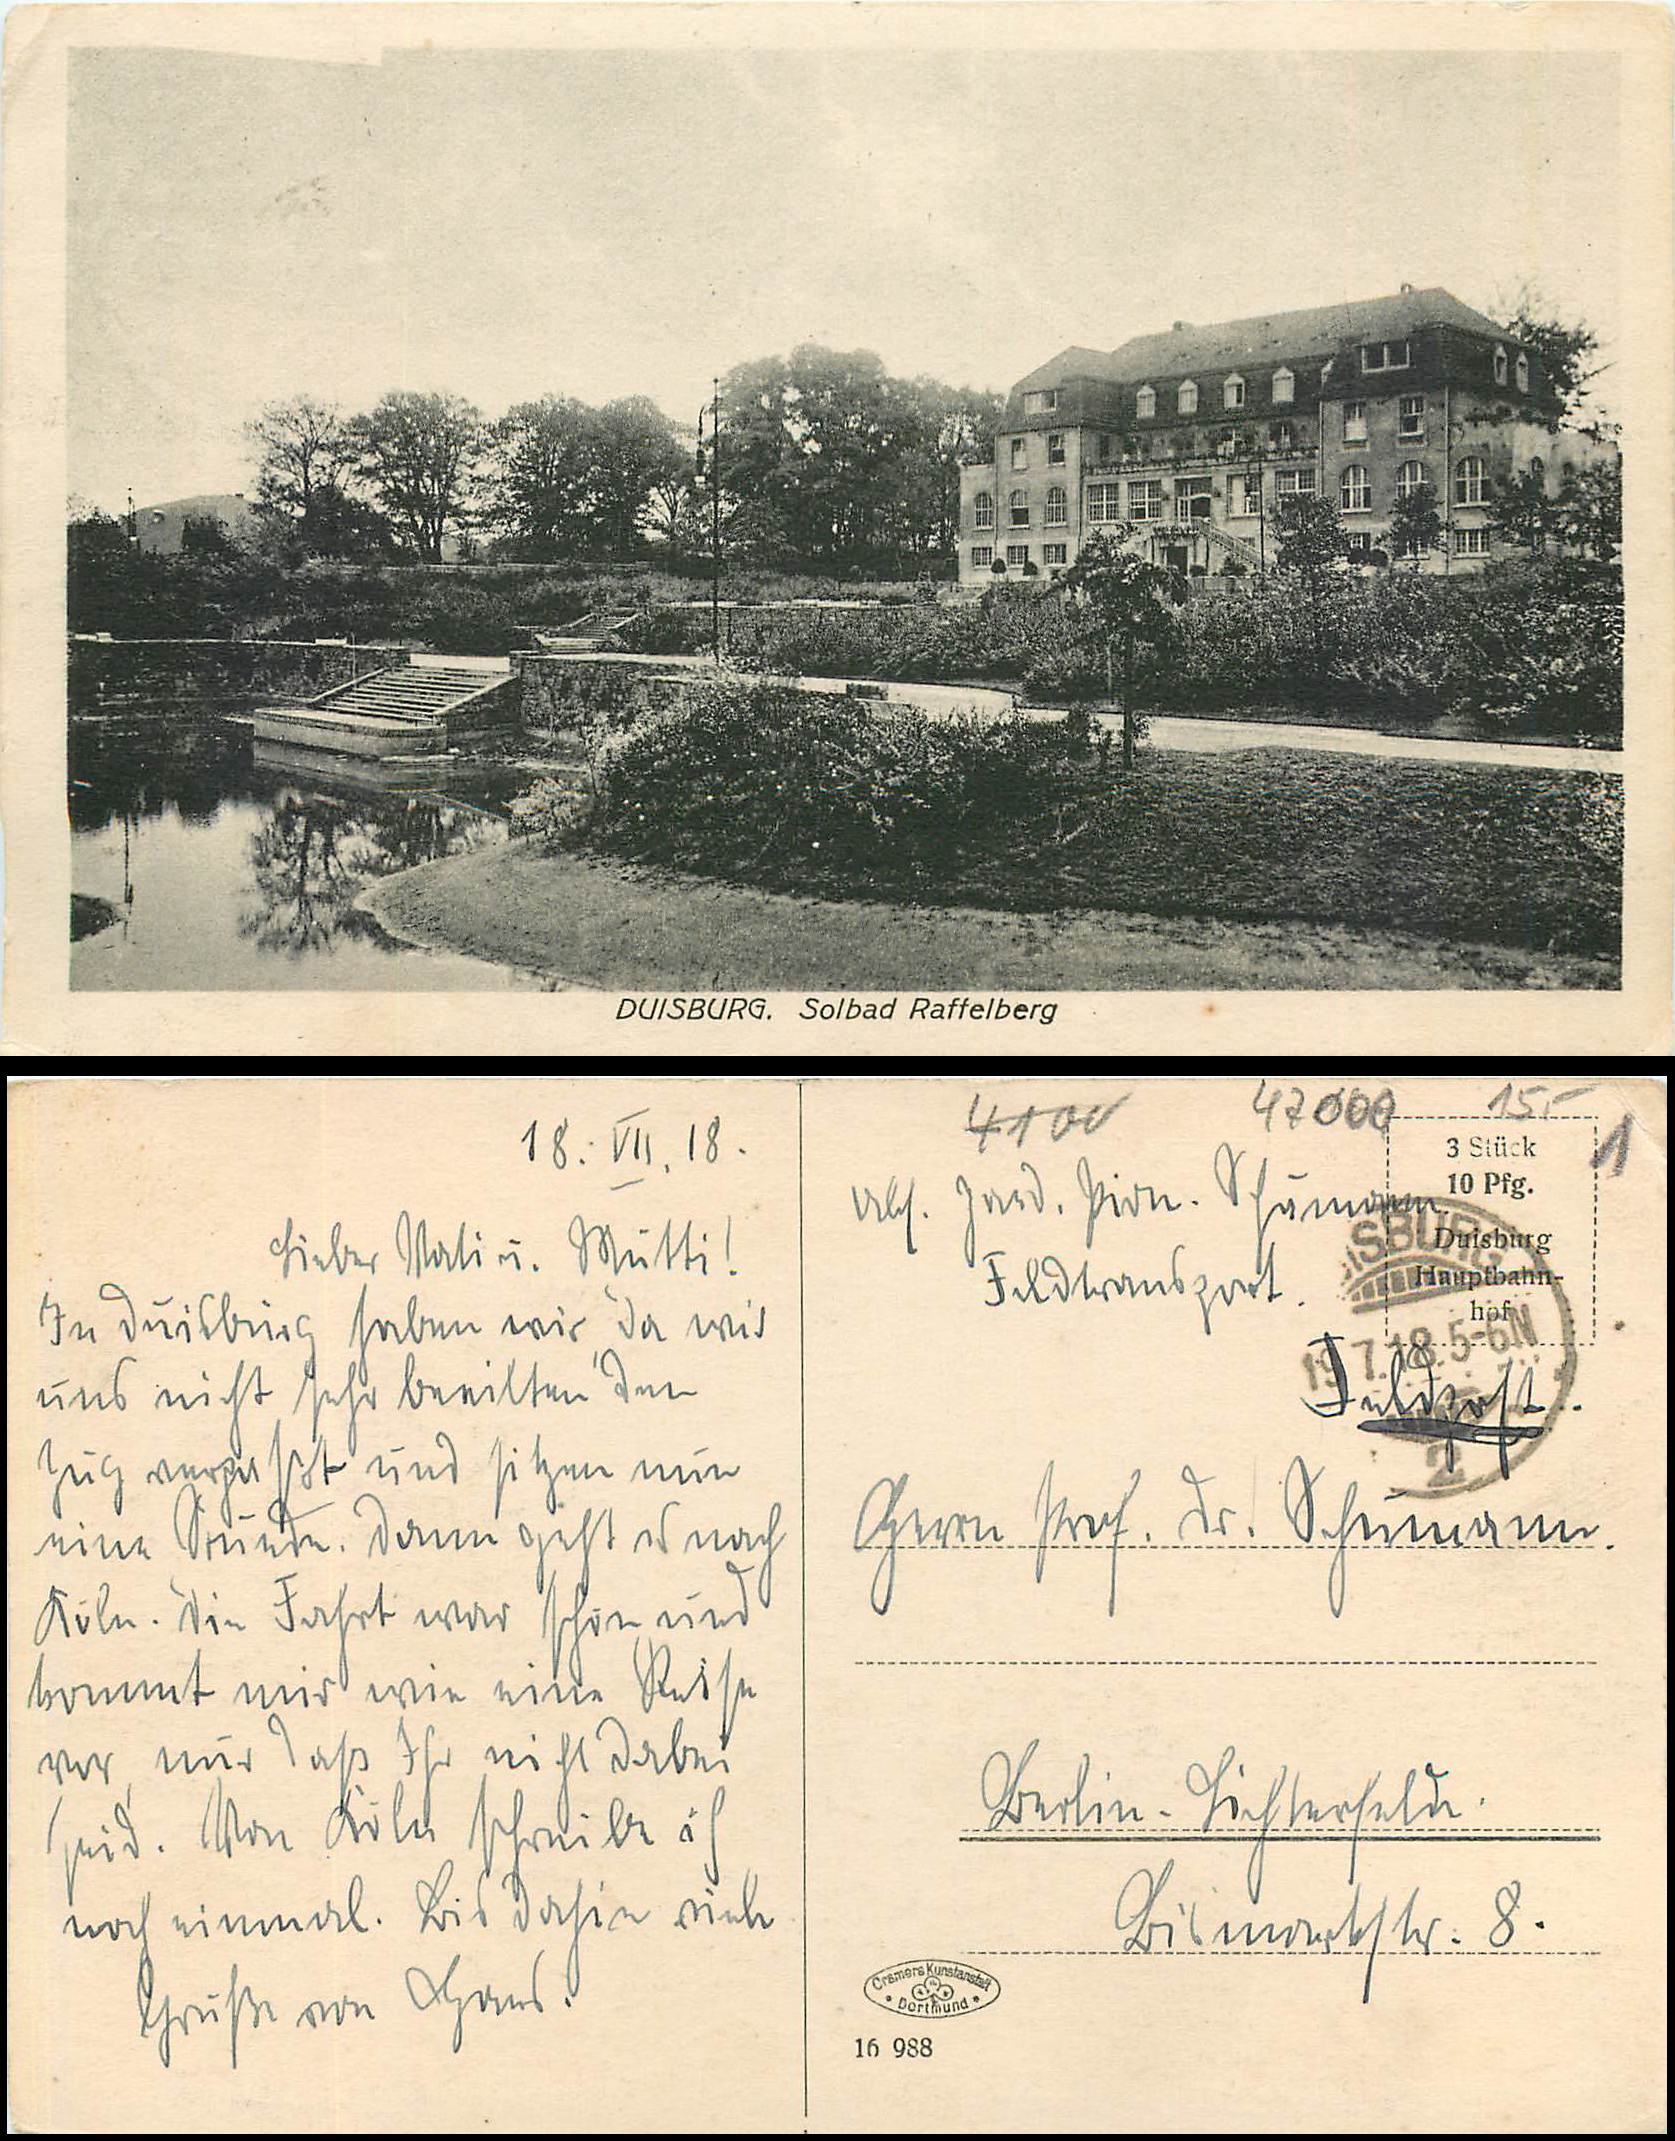 DUISBURG. Solbad Raffelberg
18. VII. 18.
Lieber Vati u. Mutti!
In Duisburg haben wir, da wir
uns nicht sehr beeilten den
Zug verpaßt und sitzen nun
eine Stunde. Dann geht es nach
Köln. Die Fahrt war schön und
kommt mir wie eine Reise
vor, nur daß Ihr nicht dabei
seid. Von Köln schreibe ich
noch einmal. Bis dahin viele
Grüße von Hans.
4100
47000
15,-
1
3 Stück
10 Pfg.
Duisburg
Hauptbahn-
hof
Abs. Pion. Schumann.
Feldtransport.
DUISBURG
19.7.18.5-6N
2
Feldpost.
Herrn Prof. Dr. Schumann.
Berlin-Lichterfelde.
Bismarkstr. 8.
Cramers Kunstanstalt
Dortmund
16 988